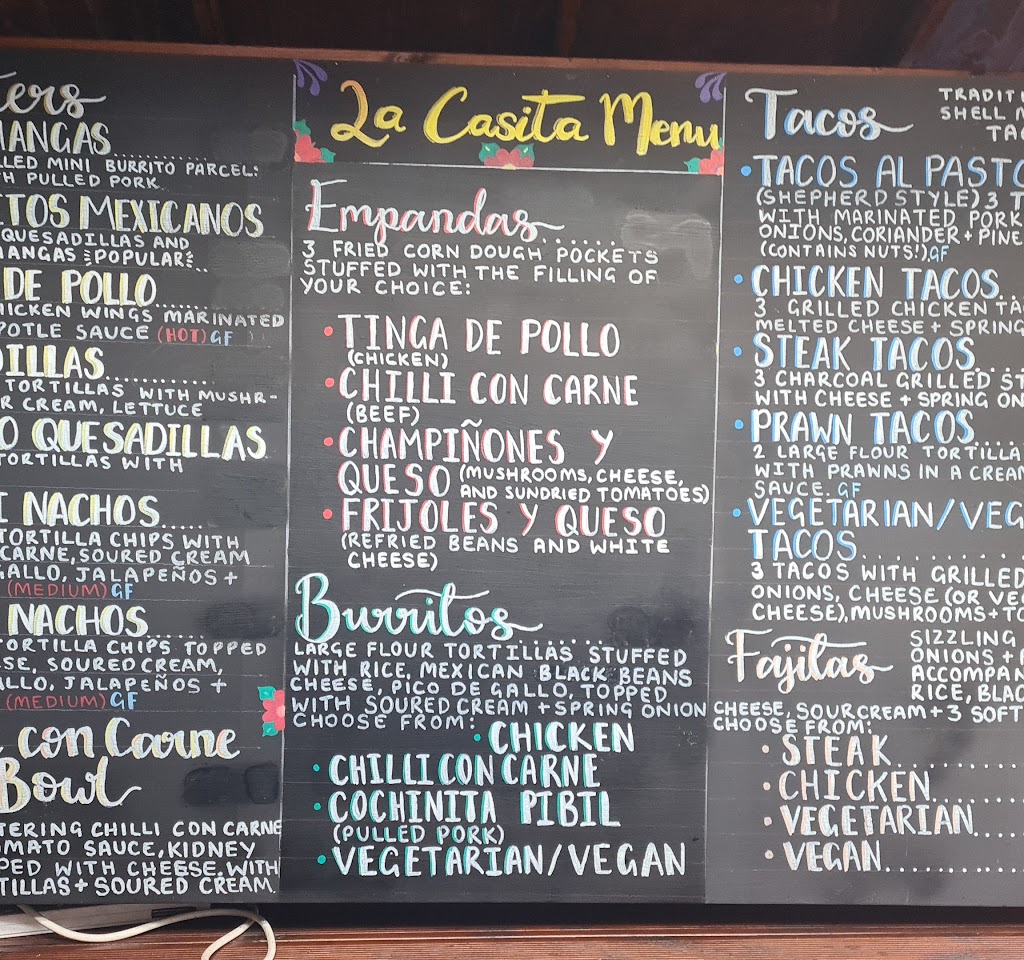 ters
HANGAS
LLED MINI BURRITO PARCEL:
TH PULLED PORK
ITOS MEXICANOS
QUESADILLAS AND
HANGAS POPULAR
DE POLLO
HICKEN WINGS MARINATED
POTLE SAUCE (HOT) GF
DILLAS
TORTILLAS WITH MUSHR-
R CREAM, LETTUCE
O QUESADILLAS
TORTILLAS WITH
I NACHOS
TORTILLA CHIPS WITH
CARNE, SOURED CREAM
GALLO, JALAPEÑOS +
(MEDIUM) GF
NACHOS
TORTILLA CHIPS TOPPED
SE, SOURED CREAM,
ALLO, JALAPEÑOS +
(MEDIUM) GF
con Carne
Bowl
TERING CHILLI CON CARNE
MATO SAUCE, KIDNEY
PED WITH CHEESE, WITH
TILLAS + SOURED CREAM.
La Casita Menu
Empandas
3 FRIED CORN DOUGH POCKETS
STUFFED WITH THE FILLING OF
YOUR CHOICE:
• TINGA DE POLLO
(CHICKEN)
• CHILLI CON CARNE
(BEEF)
• CHAMPIÑONES Y
QUESO (MUSHROOMS, CHEESE,
AND SUNDRIED TOMATOES)
• FRIJOLES Y QUESO
(REFRIED BEANS AND WHITE
CHEESE)
Burritos
LARGE FLOUR TORTILLAS STUFFED
WITH RICE, MEXICAN BLACK BEANS
CHEESE, PICO DE GALLO, TOPPED
WITH SOURED CREAM + SPRING ONION
CHOOSE FROM:
• CHICKEN
• CHILLI CON CARNE
• COCHINITA PIBIL
(PULLED PORK)
• VEGETARIAN/VEGAN
Tacos
TRADITI
SHELL
TAC
• TACOS AL PASTO
(SHEPHERD STYLE) 3 T
WITH MARINATED PORK
ONIONS, CORIANDER + PINE
(CONTAINS NUTS!). GF
• CHICKEN TACOS
3 GRILLED CHICKEN TA
MELTED CHEESE + SPRING
• STEAK TACOS
3 CHARCOAL GRILLED ST
WITH CHEESE + SPRING ON
• PRAWN TACOS
2 LARGE FLOUR TORTILLA
WITH PRAWNS IN A CREAM
SAUCE. GF
• VEGETARIAN/VEG
TACOS
3 TACOS WITH GRILLED
ONIONS, CHEESE (OR VEG
CHEESE), MUSHROOMS + TO
Fajitas
SIZZLING
ONIONS +
ACCOMPAN
RICE, BLAC
CHEESE, SOUR CREAM + 3 SOFT
CHOOSE FROM:
• STEAK
• CHICKEN
• VEGETARIAN
• VEGAN